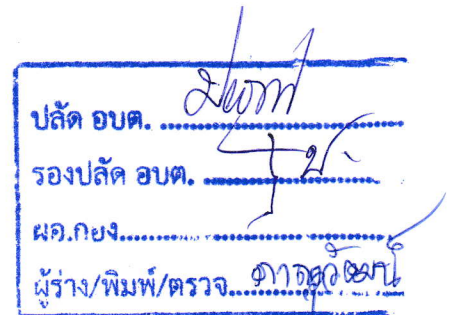 ปลัด อบต. ....................
รองปลัด อบต. ....................
ผอ.กอง....................
ผู้ร่าง/พิมพ์/ตรวจ....................